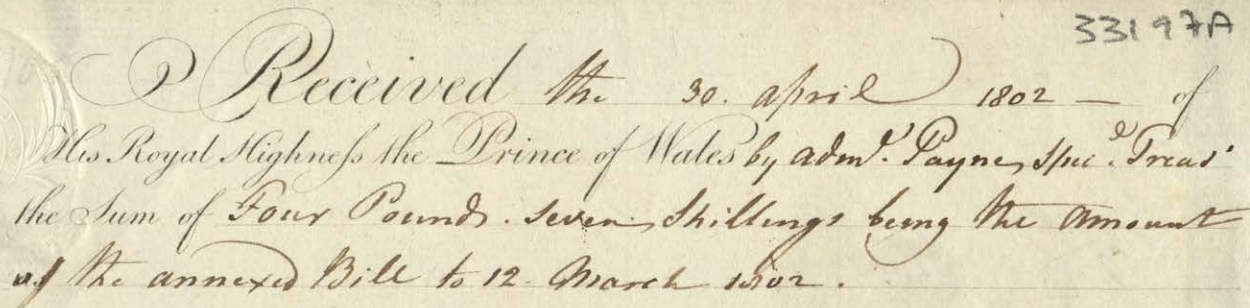 33197A
Received the 30. April 1802 — of
His Royal Highneſs the Prince of Wales by Adml. Payne, Treasr
the Sum of Four Pounds. Seven Shillings being the Amount
of the annexed Bill to 12. March 1802.